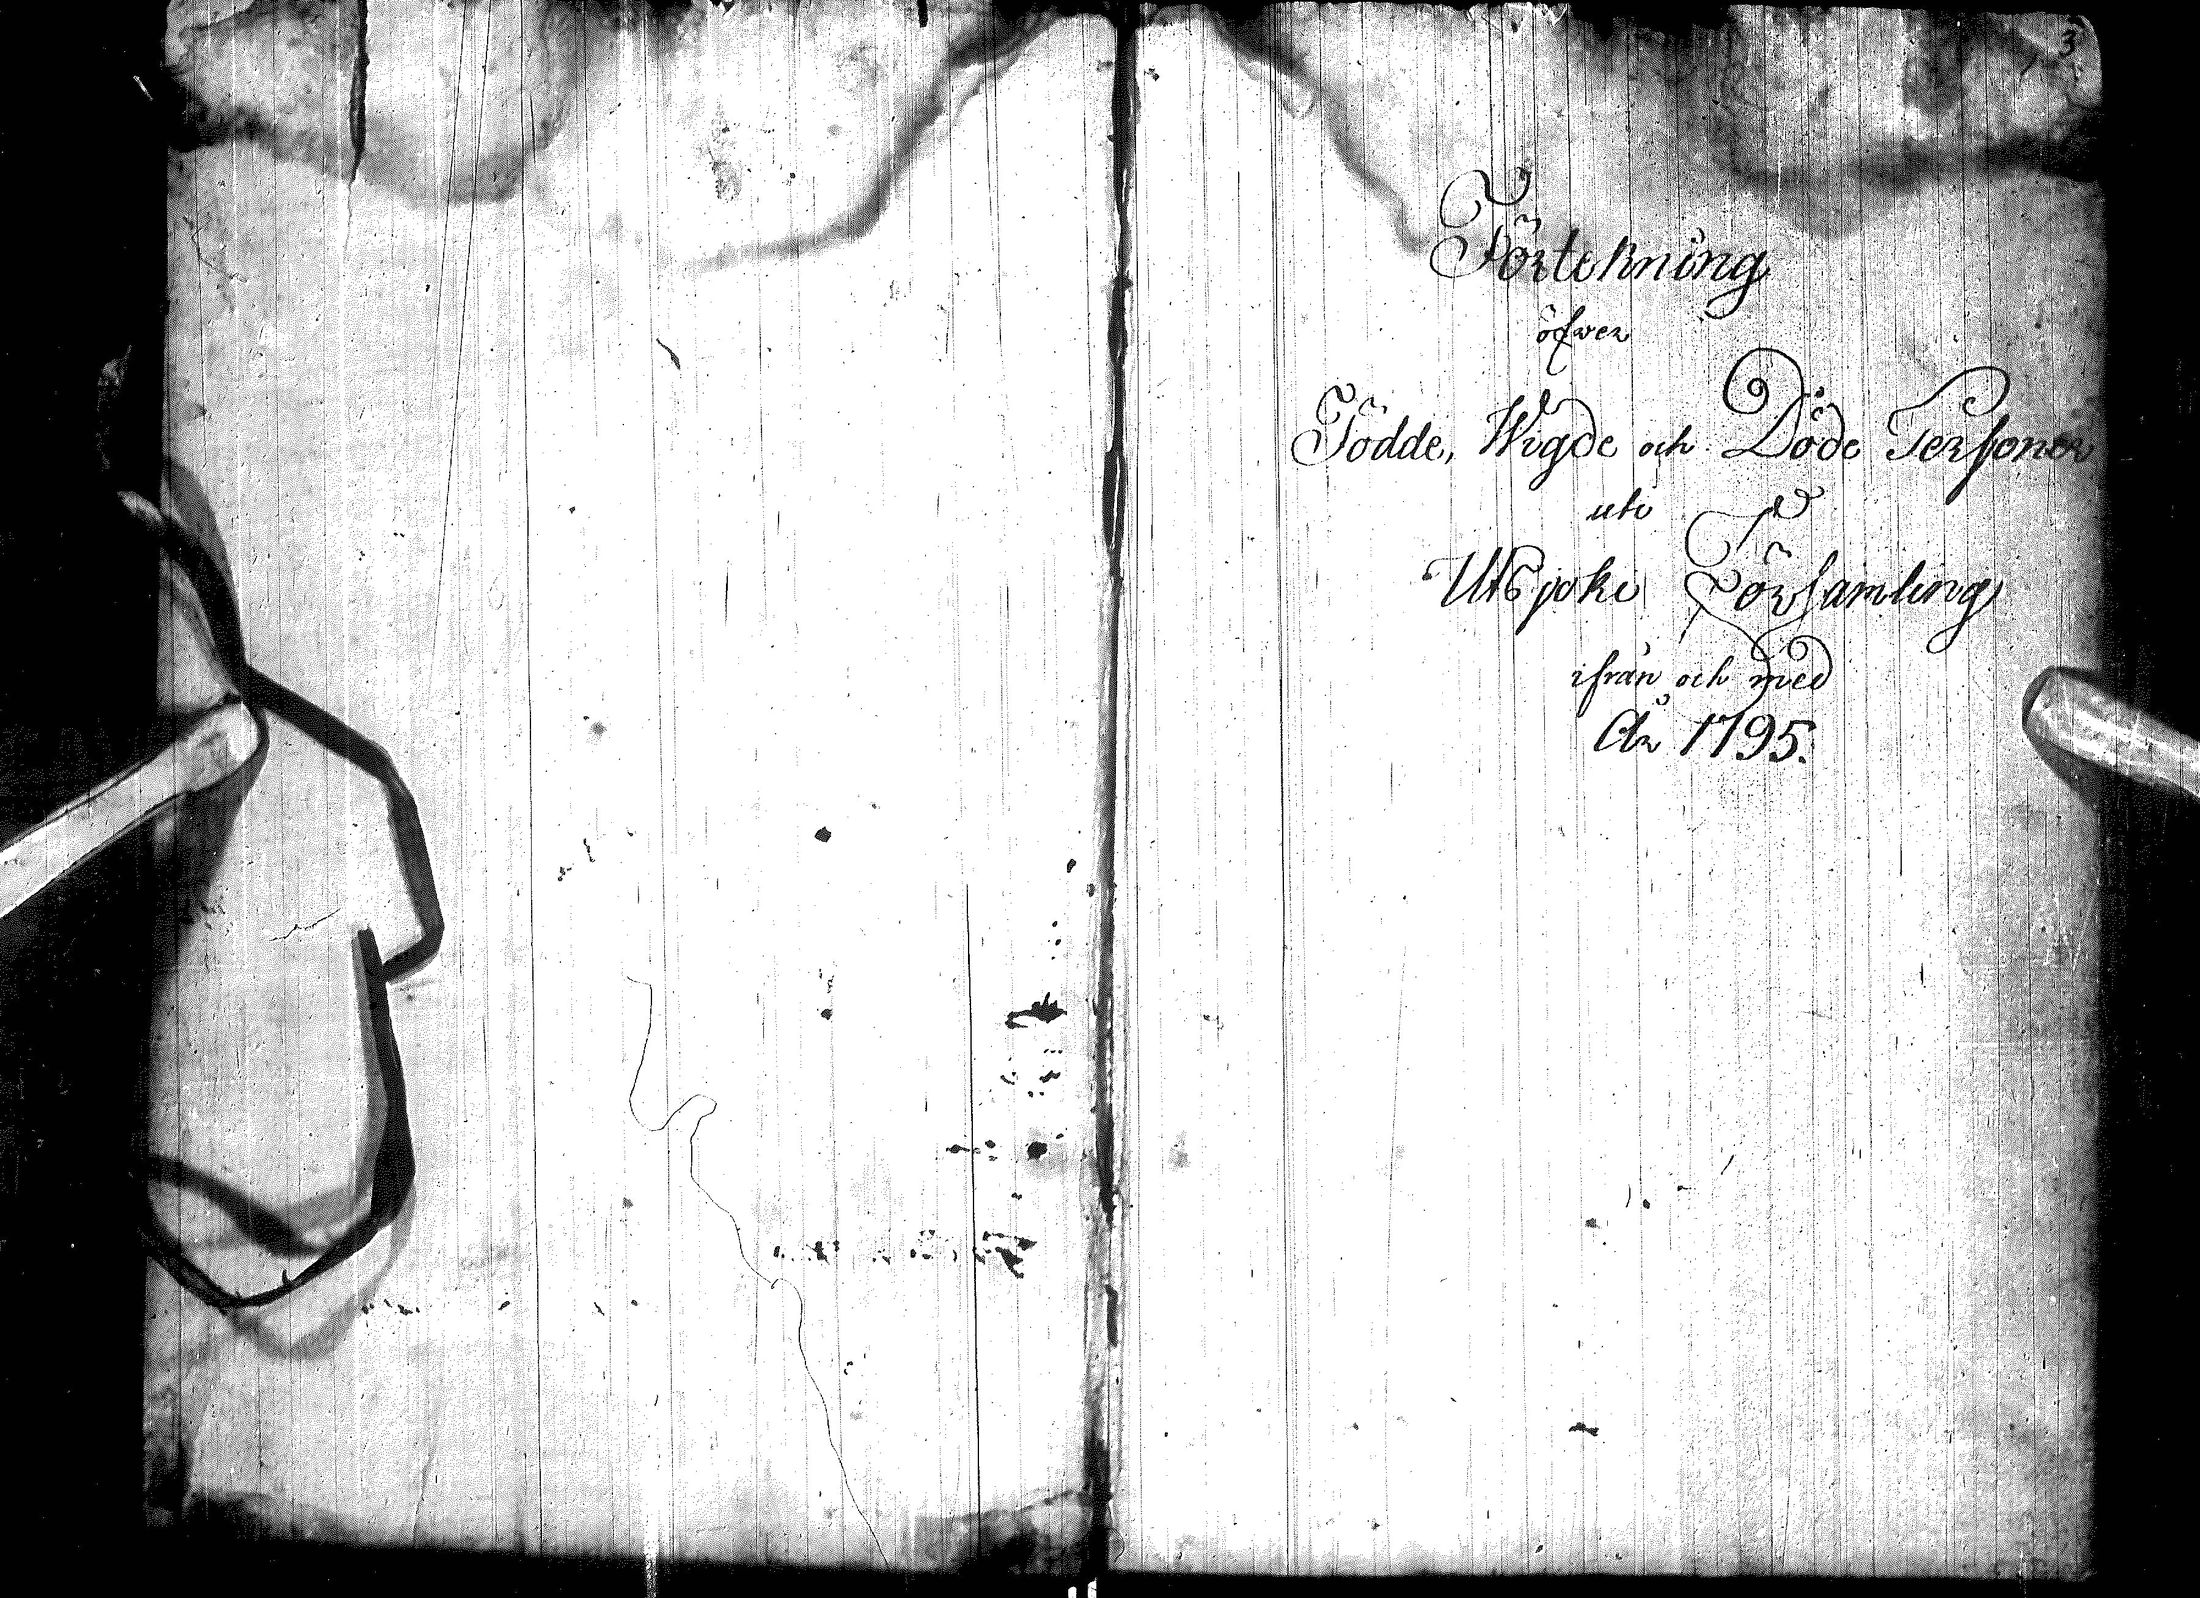 3
Förtekning
öfwer
Födde, Wigde och Döde Personer
uti
Utsjoki Församling
ifrån och med
År 1795.